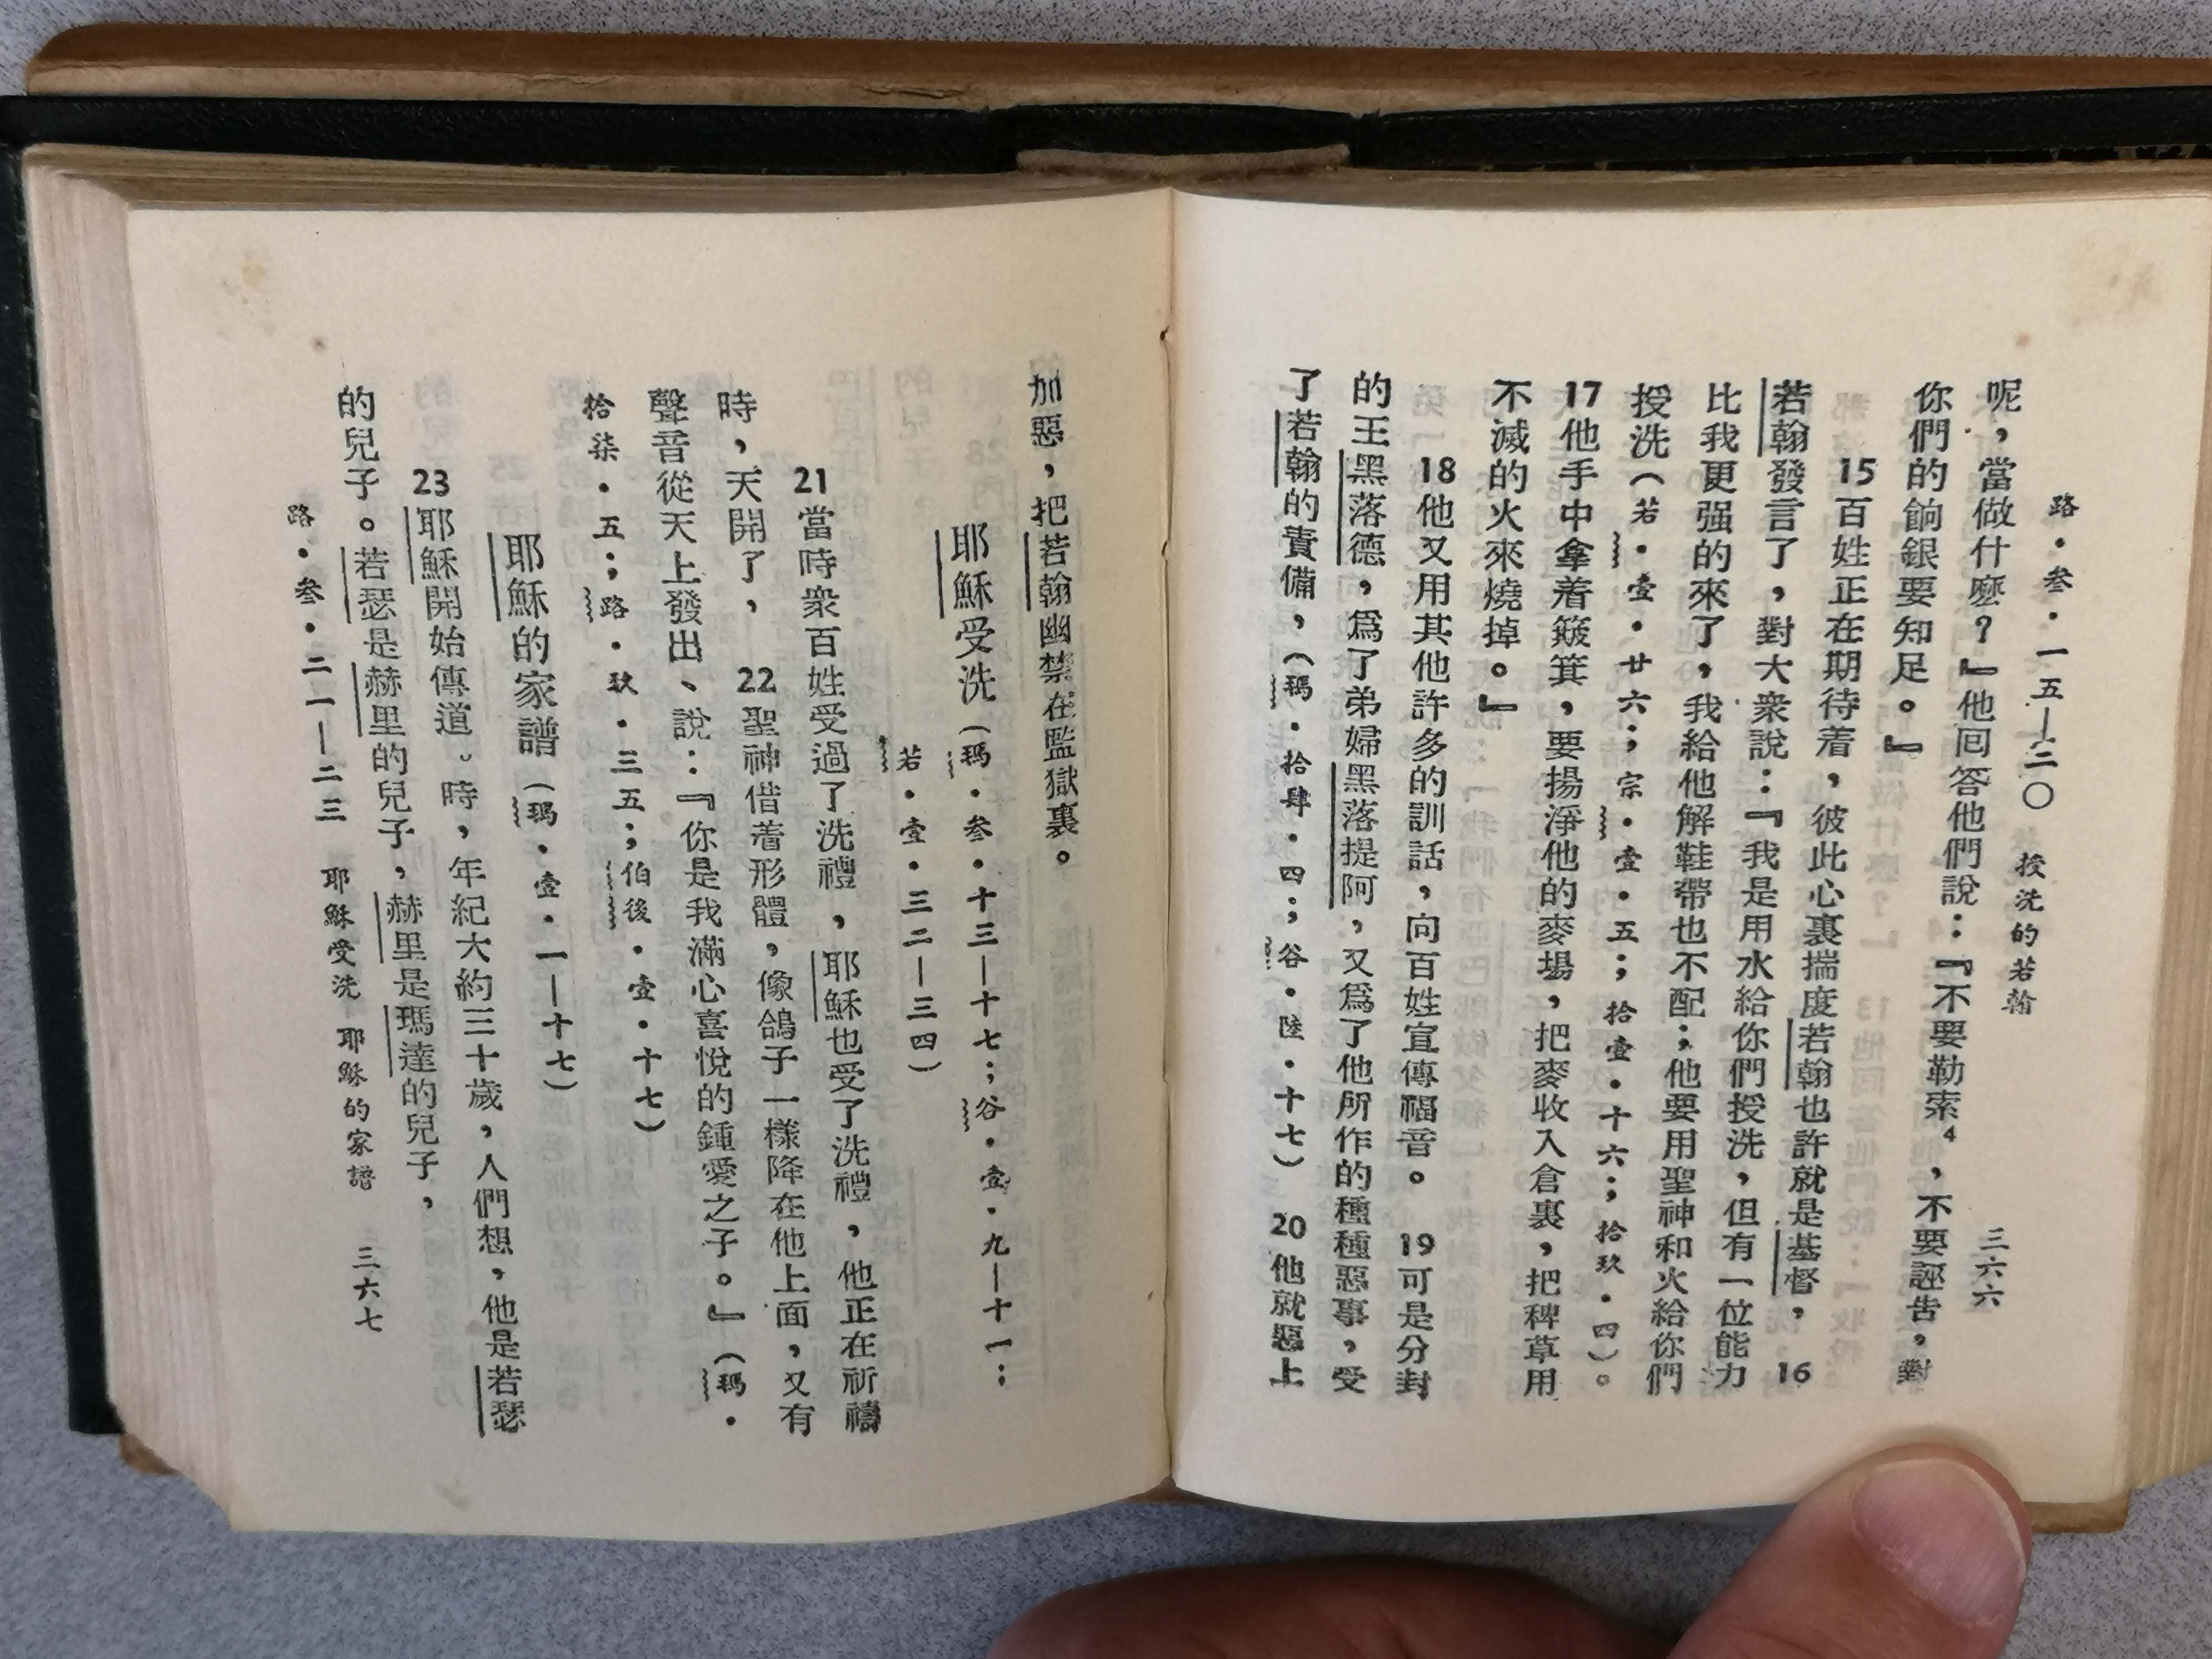 路・叁・一五—二〇　授洗的若翰　三六六
呢，當做什麼？』他囘答他們說：『不要勒索⁴，不要誣告，對
你們的餉銀要知足。』
15百姓正在期待着，彼此心裏揣度若翰也許就是基督， 16
若翰發言了，對大衆說：『我是用水給你們授洗，但有一位能力
比我更强的來了，我給他解鞋帶也不配；他要用聖神和火給你們
授洗（若・壹・廿六；宗・壹・五；拾壹・十六；拾玖・四）。
17他手中拿着簸箕，要揚淨他的麥場，把麥收入倉裏，把稗草用
不滅的火來燒掉。』
18他又用其他許多的訓話，向百姓宣傳福音。 19可是分封
的王黑落德，爲了弟婦黑落提阿，又爲了他所作的種種惡事，受
了若翰的責備，（瑪・拾肆・四；谷・陸・十七） 20他就惡上
加惡，把若翰幽禁在監獄裏。
耶穌受洗（瑪・叁・十三—十七；谷・壹・九—十一；
若・壹・三二—三四）
21當時衆百姓受過了洗禮，耶穌也受了洗禮，他正在祈禱
時，天開了， 22聖神借着形體，像鴿子一樣降在他上面，又有
聲音從天上發出、說：『你是我滿心喜悅的鍾愛之子。』（瑪・
拾柒・五；路・玖・三五；伯後・壹・十七）
耶穌的家譜（瑪・壹・一—十七）
23耶穌開始傳道。時，年紀大約三十歲，人們想，他是若瑟
的兒子。若瑟是赫里的兒子，赫里是瑪達的兒子，
路・叁・二一—二三　耶穌受洗　耶穌的家譜　三六七